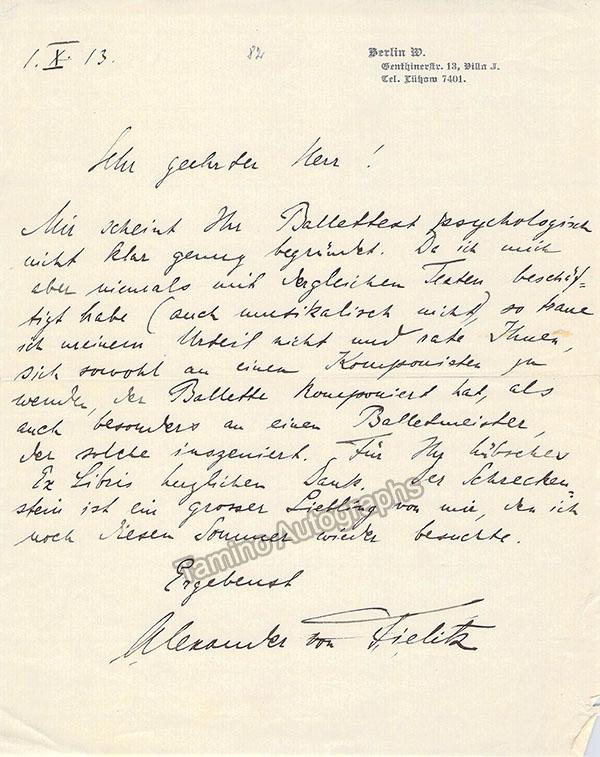 1. X. 13.
82
Berlin W.
Genthinerstr. 13, Villa J.
Tel. Lützow 7401.
Sehr geehrter Herr!
Mir scheint Ihr Ballettext psychologisch
nicht klar genug begründet. Da ich mich
aber niemals mit dergleichen Texten beschäf-
tigt habe (auch musikalisch nicht) so traue
ich meinem Urteil nicht und rate Ihnen,
sich sowohl an einen Komponisten zu
wenden, der Ballette komponiert hat, als
auch besonders an einen Balletmeister,
der solche inszeniert. Für Ihr hübsches
Ex Libris herzlichen Dank. Der Schrecken
stein ist ein grosser Liebling von mir, den ich
noch diesen Sommer wieder besuchte.
Ergebenst
Alexander von Fielitz
Tamino Autographs